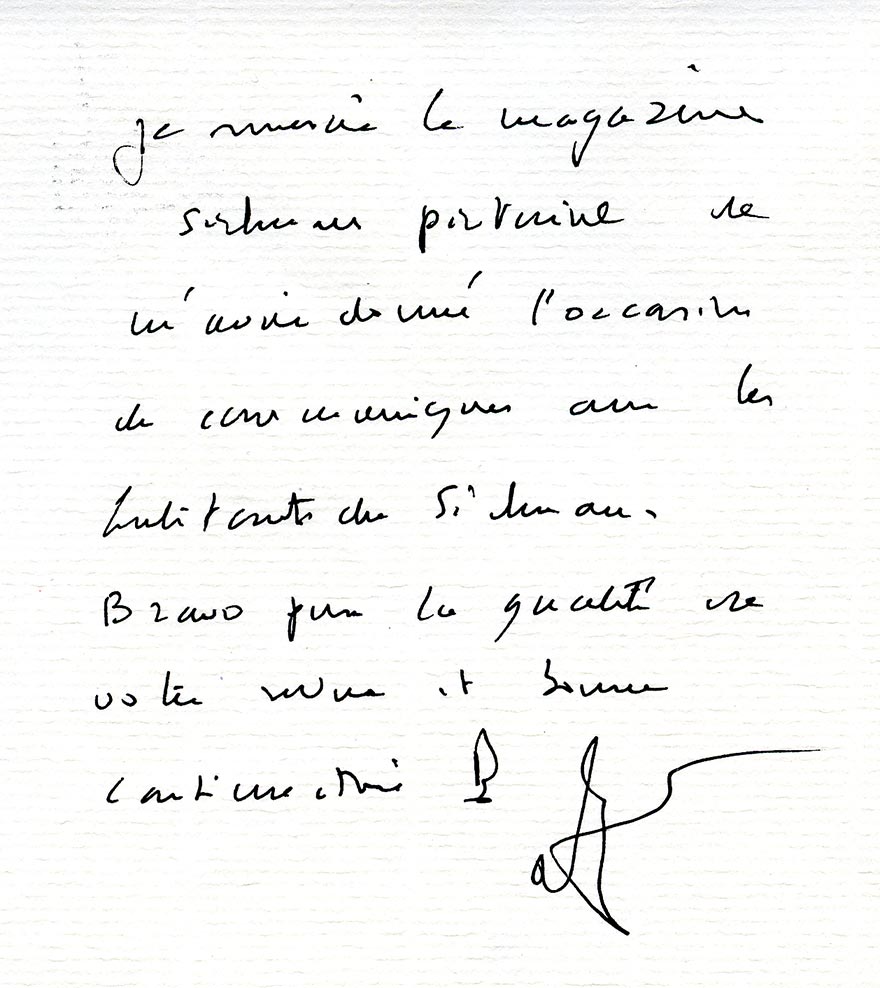 Je remercie le magazine
Sidumau partenaire de
m'avoir donné l'occasion
de communiquer avec les
habitants de
Bravo pour la qualité de
votre revue et bonne
continuation